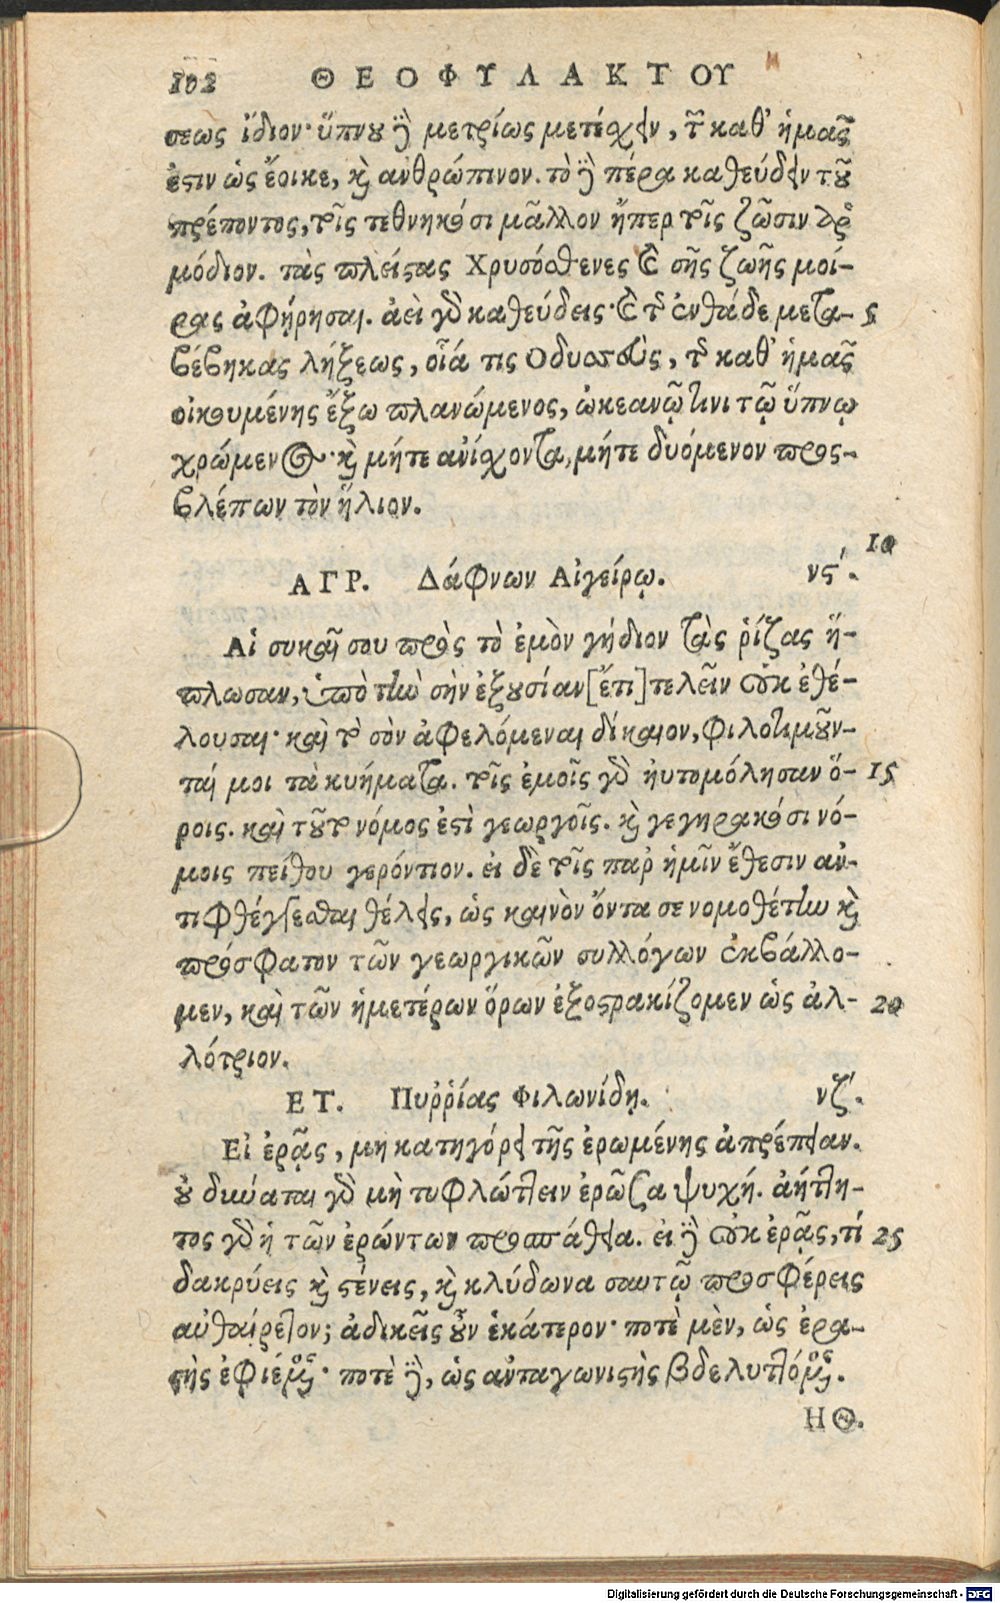 102 ΘΕΟΦΥΛΑΚΤΟΥ
σεως ἴδιον· ὕπνου δὲ μετρίως μετέχειν, τῆς καθ' ἡμᾶς
ἐστιν ὡς ἔοικε, καὶ ἀνθρώπινον. τὸ δὲ πέρα καθεύδειν τοῦ
πρέποντος, τοῖς τεθνηκόσι μᾶλλον ἤπερ τοῖς ζῶσιν ἁρ-
μόδιον. τὰς πλείστας Χρυσόσθενες τῆς σῆς ζωῆς μοί-
ρας ἀφῄρησαι. ἀεὶ γὰρ καθεύδεις· καὶ τῆς ἐνθάδε μετα- 5
βέβηκας λήξεως, οἷά τις Οδυσσεὺς, τῆς καθ' ἡμᾶς
οἰκουμένης ἔξω πλανώμενος, ὠκεανῷ τινι τῷ ὕπνῳ
χρώμενος· καὶ μήτε ἀνίχοντα, μήτε δυόμενον προς-
βλέπων τὸν ἥλιον.
10
ΑΓΡ. Δάφνων Αἰγείρῳ. νϛ'.
Αἱ συκαῖ σου πρὸς τὸ ἐμὸν γήδιον τὰς ῥίζας ἥ-
πλωσαν, ὑπὸ τὴν σὴν ἐξουσίαν [ἔτι] τελεῖν οὐκ ἐθέ-
λουσαι· καὶ τὸ σὸν ἀφελόμεναι δίκαιον, φιλοτιμοῦν-
ταί μοι τὰ κυήματα. τοῖς ἐμοῖς γὰρ ηὐτομόλησαν ὅ- 15
ροις. καὶ τοῦτο νόμος ἐστὶ γεωργοῖς. καὶ γεγηρακόσι νό-
μοις πείθου γερόντιον. εἰ δὲ τοῖς παρ' ἡμῖν ἔθεσιν ἀν-
τιφθέγγεσθαι θέλεις, ὡς καινὸν ὄντα σε νομοθέτην καὶ
πρόσφατον τῶν γεωργικῶν συλλόγων ἐκβάλλο-
μεν, καὶ τῶν ἡμετέρων ὅρων ἐξοστρακίζομεν ὡς ἀλ- 20
λότριον.
ΕΤ. Πυῤῥίας Φιλωνίδῃ. νζ'.
Εἰ ἐρᾷς, μὴ κατηγόρει τῆς ἐρωμένης ἀπρέπειαν.
οὐ δύναται γὰρ μὴ τυφλώττειν ἐρῶσα ψυχή. ἀήττη-
τος γὰρ ἡ τῶν ἐρώντων προσπάθεια. εἰ δὲ οὐκ ἐρᾷς, τί 25
δακρύεις καὶ στένεις, καὶ κλύδωνα σαυτῷ προσφέρεις
αὐθαίρετον; ἀδικεῖς οὖν ἑκάτερον· ποτὲ μὲν, ὡς ἐρα-
στὴς ἐφιέμενος· ποτὲ δὲ, ὡς ἀνταγωνιστὴς βδελυττόμενος.
ΗΘ.
Digitalisierung gefördert durch die Deutsche Forschungsgemeinschaft - DFG